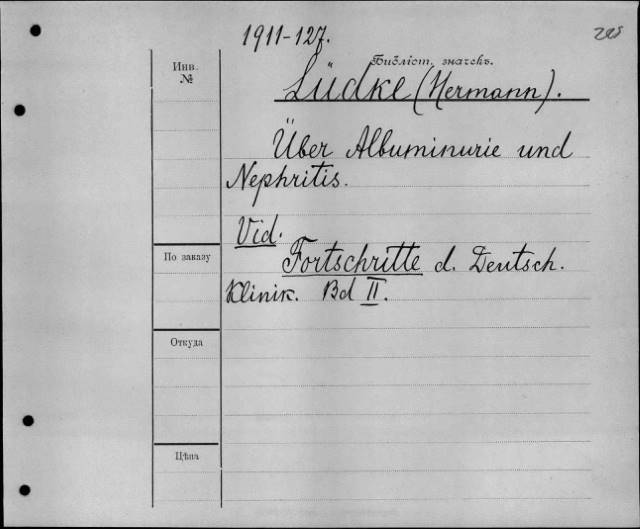 1911-127.
225
Инв.
№
Библіот. значекъ.
Lüdke (Hermann).
Über Albuminurie und
Nephritis.
Vid.
По заказу
Fortschritte d. Deutsch.
Klinik. Bd II.
Откуда
Цѣна